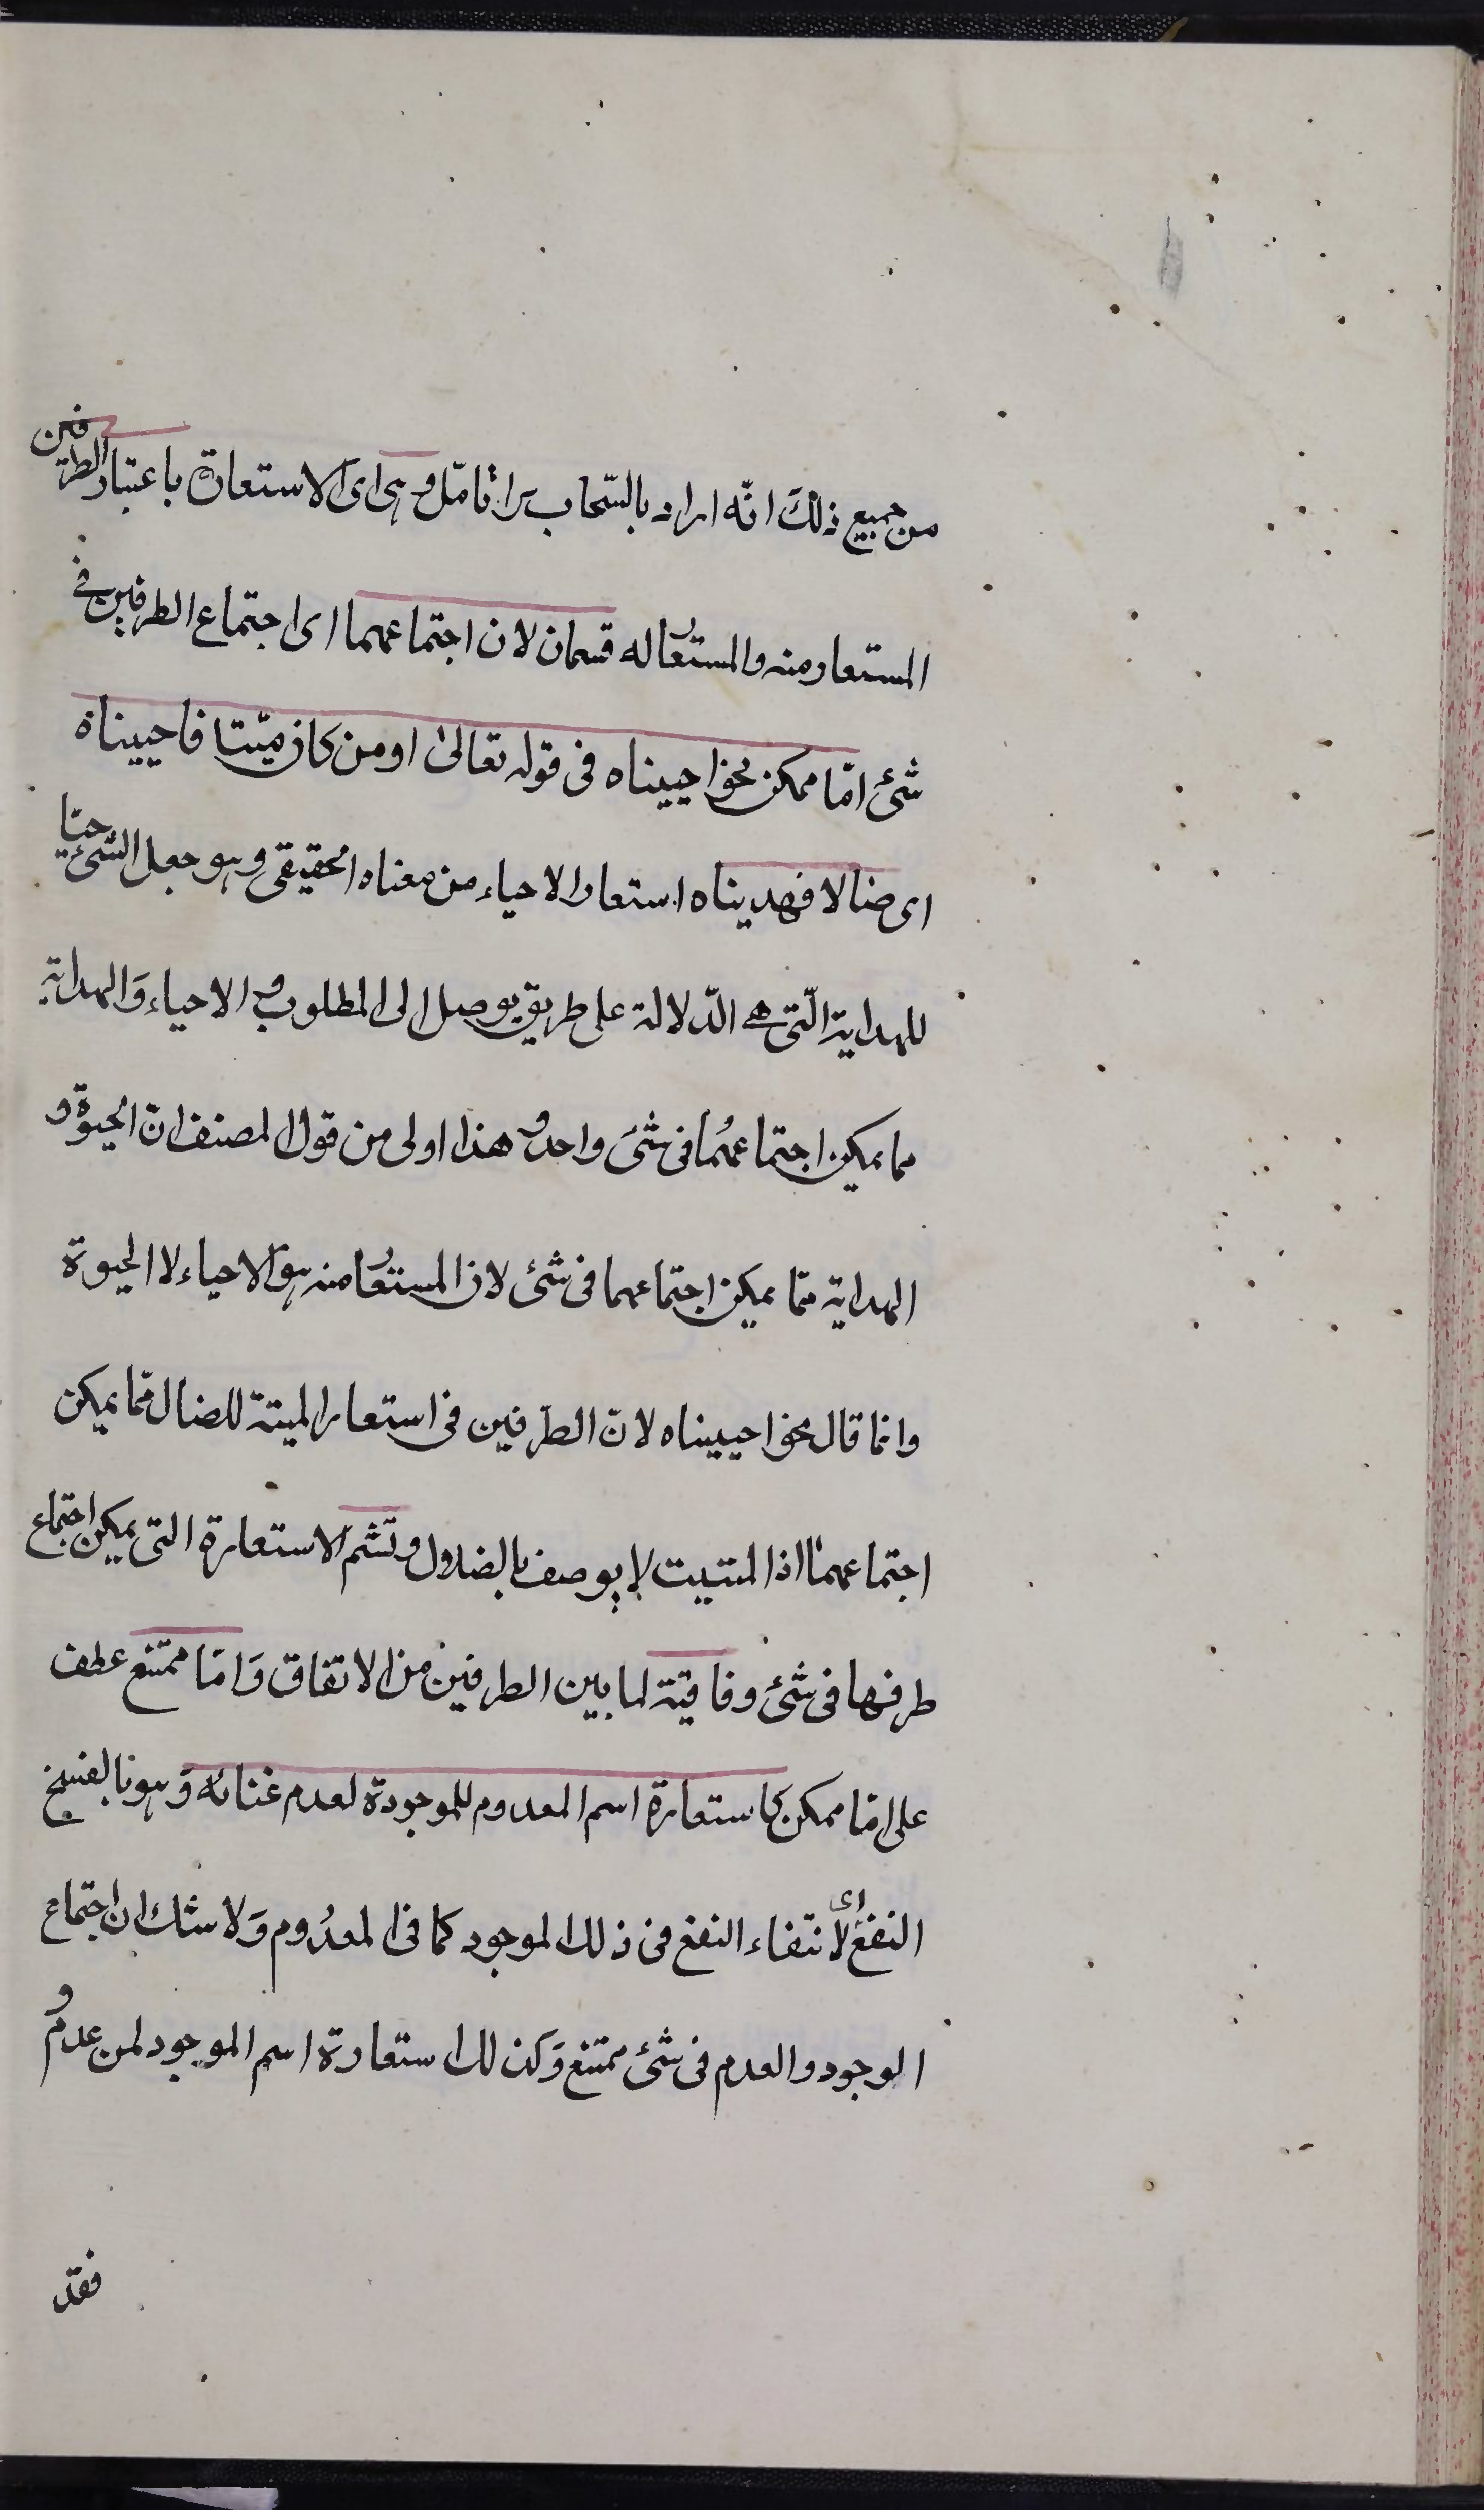 من جميع ذلك انّه اراد بالسّحاب برا ثامّل وهى اى الاستعارة باعتبار الطرفين
المستعار منه والمستعار له قسمان لان اجتماعهما اى اجتماع الطرفين فى
شئ امّا ممكن نحو احييناه فى قوله تعالى او من كان ميّتا فاحييناه
اى ضالا فهديناه استعار الاحياء من معناه الحقيقى وهو جعل الشئ حيّا
للهداية الّتى هى الدّلالة على طريق يوصل الى المطلوب و الاحياء وَالهداية
مما يمكن اجتماعهُما فى شئ واحد و هذا اولى من قول المصنف انّ الحيوة و
الهداية ممّا يمكن اجتماعهما فى شئ لان المستعار منه هو الاحياء لا الحيوة
وانما قال نحو احييناه لانّ الطّرفين فى استعار الميتة للضال ممّا يمكن
اجتماعهما اذ الميت لا يوصف بالضلال و تسّم الاستعارة التى يمكن اجتماع
طرفها فى شئ وفاقيّة لما بين الطرفين من الاتفاق وَامّا ممتنع عطف
على امّا ممكن كاستعارة اسم المعدوم للموجودة لعدم غنائه وَهو بالفتح
النفع اى لانتفاء النفع فى ذلك الموجود كما فى المعدُوم وَلا شك ان اجتماع
الوجود والعدم فى شئ ممتنع وَكذلك استعارة اسم الموجود لمن عدم و
فقد